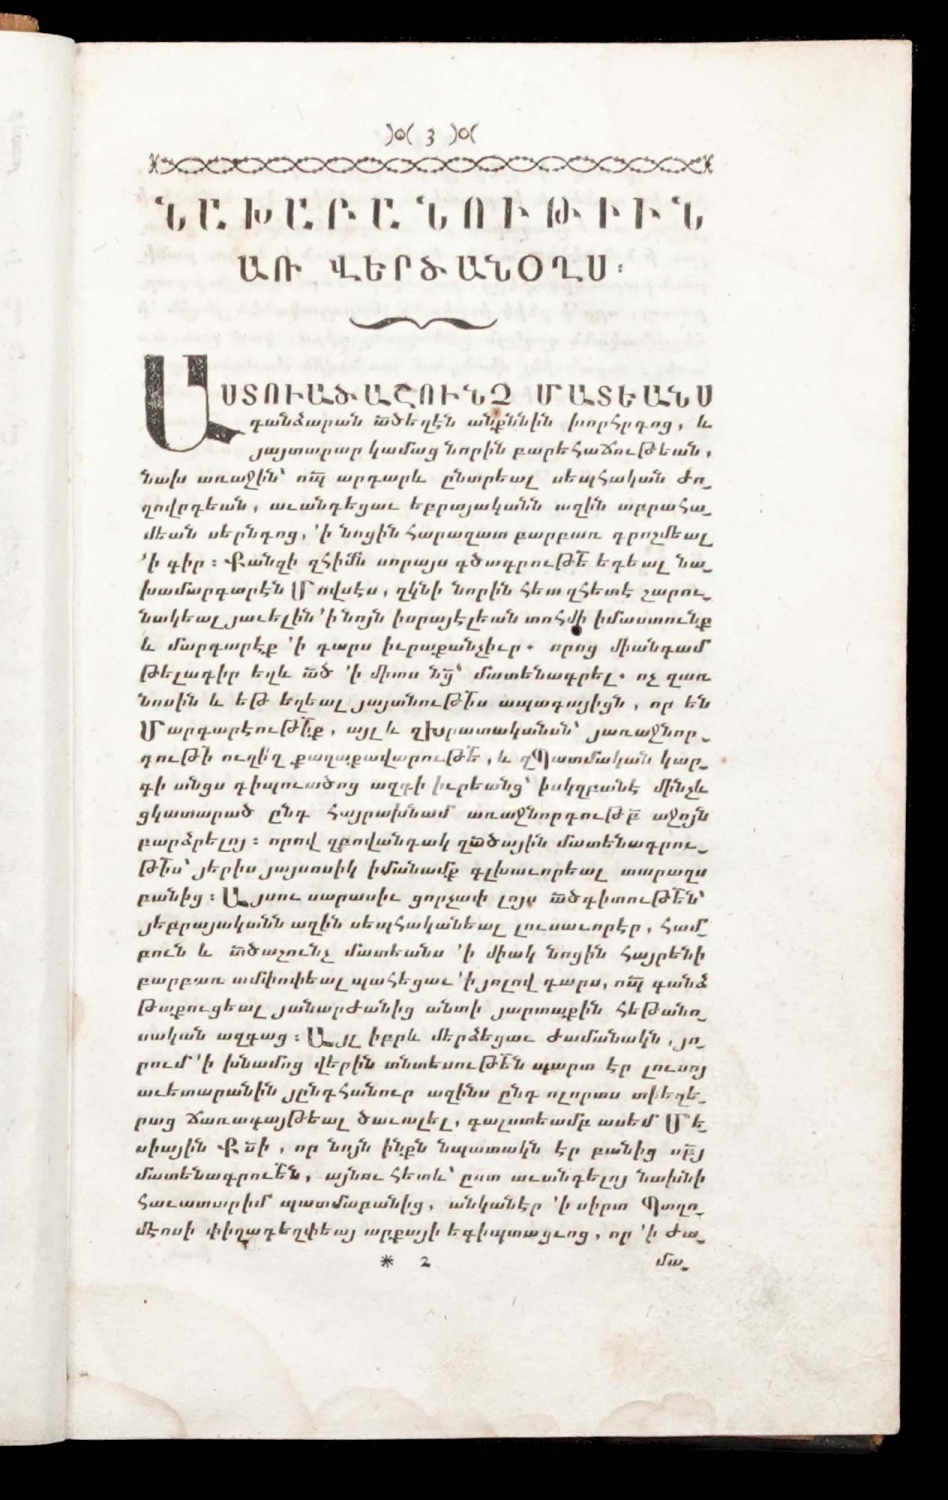 )o( 3 )o(
ՆԱԽԱՐԱՆՈՒԹԻՒՆ
ԱՌ ՎԵՐԾԱՆՕՂՍ։
ԱՍՏՈՒԱԾԱՇՈՒՆՉ ՄԱՏԵԱՆՍ
գանձարան ա՟ծեղէն անքննին խորհրդոց, և
յայտարար կամաց նորին բարեհաճութեան,
նախ առաջին՝ որպ՟ արդարև ընտրեալ սեպհական ժո֊
ղովրդեան, աւանդեցաւ եբրայականն ազին աբրահա֊
մեան սերնդոց, ՚ի նոցին հարազատ բարբառ դրոշմեալ
՚ի գիր։ Քանզի զհիմն սորայս գծագրութե՟ եդեալ նա֊
խամարգարէն Մովսէս, զկնի նորին հետզհետէ շարու֊
նակեալ յաւելին ՚ի նոյն իսրայէլեան տոհմի իմաստունք
և մարգարէք ՚ի դարս իւրաքանչիւր. որոց միանգամ
թելադիր եղև ա՟ծ ՚ի միտս նց՟՝ մատենագրել. ոչ զառ
նոսին և եթ եղեալ յայտնութի՟ս ապագայիցն, որ են
Մարգարէութի՟ք, այլ և զԽրատականսն՝ յառաջնոր֊
դութի՟ ուղիղ քաղաքավարութե՟, և զՊատմական կար֊
գի անցս դիպուածոց ազգի իւրեանց՝ իսկզբանէ մինչև
ցկատարած ընդ հայրախնամ առաջնորդութբ՟ աջոյն
բարձրելոյ։ որով զբովանդակ զա՟ծային մատենագրու֊
թի՟ս՝ յերիս յայսոսիկ իմանամք գլխաւորեալ տարազս
բանից։ Այսու սարասիւ ցորչափ լոյս ա՟ծգիտութե՟ն՝
յեբրայականն ազին սեպհականեալ լուսաւորէր, համ֊
բուն և ա՟ծաշունչ մատեանս ՚ի միակ նոցին հայրենի
բարբառ ամփոփեալ պահեցաւ ՚ի յոլով դարս, որպ՟ գանձ
թաքուցեալ յանարժանից անտի յարտաքին հեթանո֊
սական ազգաց։ Այլ իբրև մերձեցաւ ժամանակն, յո֊
րում ՚ի խնամոց վերին տնտեսութե՟ն պարտ էր լուսոյ
աւետարանին յընդհանուր ազինս ընդ ոլորտս տիեզե֊
րաց ճառագայթեալ ծաւալել, գալստեամբ ասեմ Մե֊
սիային Քս՟ի, որ նոյն ինքն նպատակն էր բանից սբ՟յ
մատենագրուե՟ն, այնու հետև՝ ըստ աւանդելոյ նախնի
հաւատարիմ պատմաբանից, անկանէր ՚ի սիրտ Պտղո֊
մէոսի փիղադեղփեայ արքայի եգիպտացւոց, որ ՚ի ժա֊
* 2 մա֊